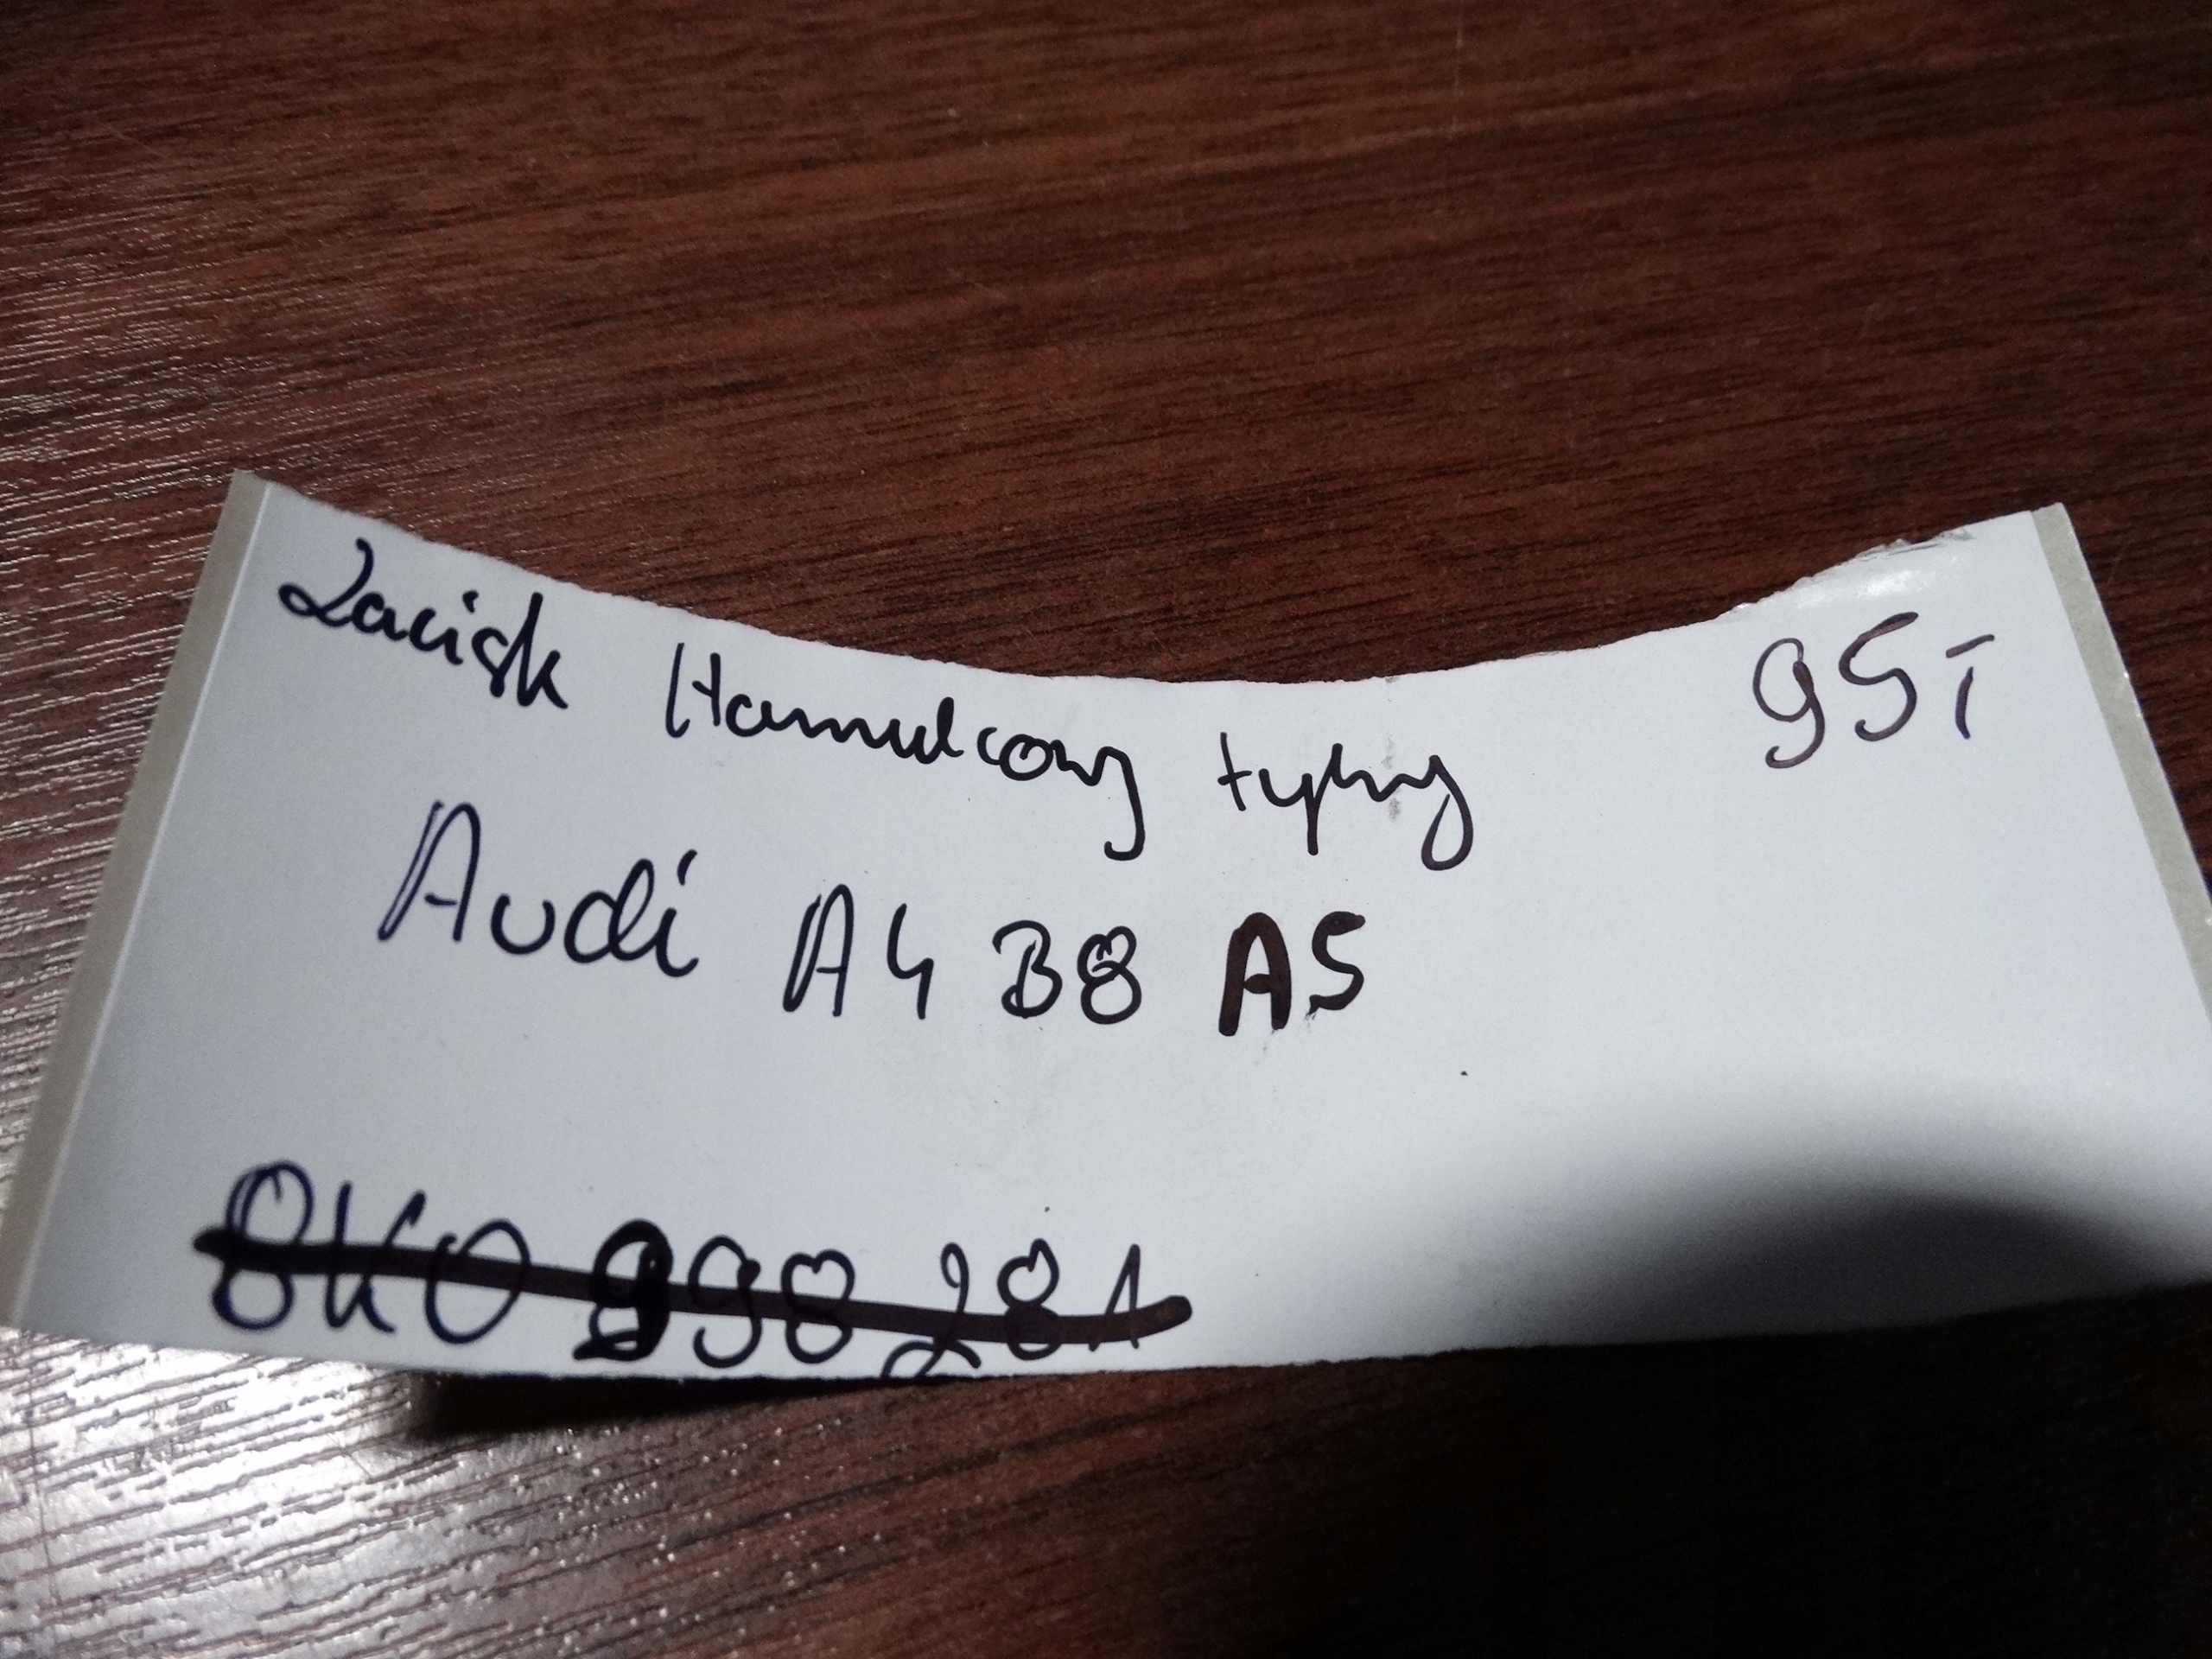 Zacisk Hamulcowy tylny
Audi A4 B8 A5
8K0 998 281